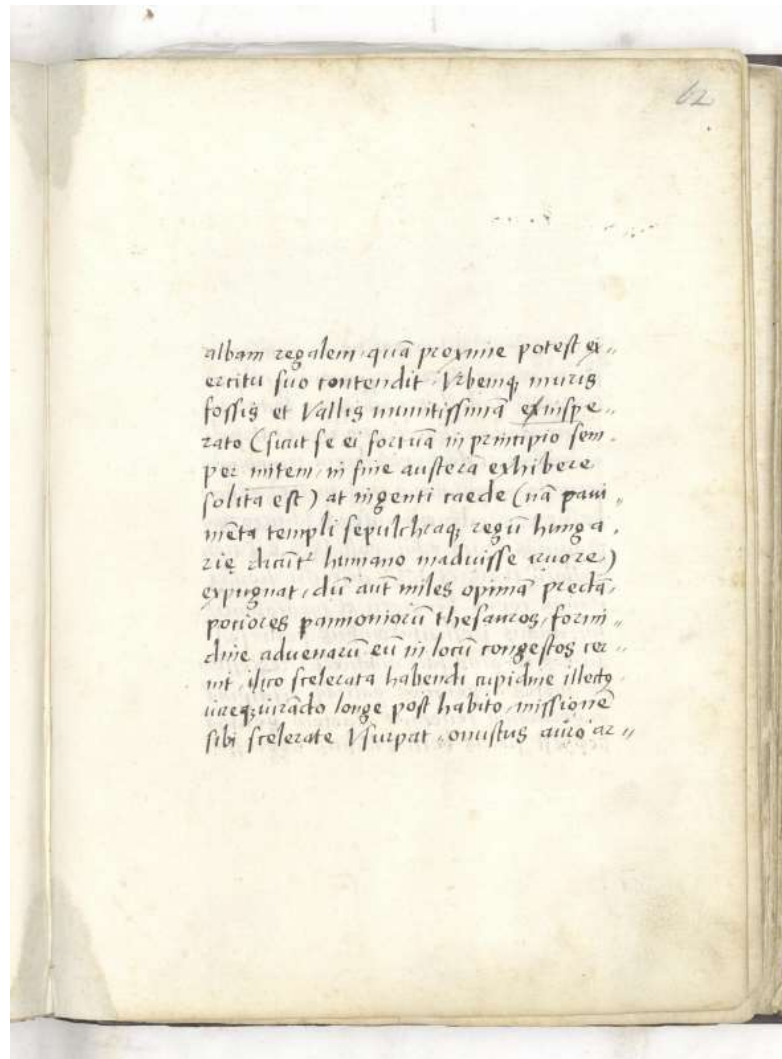 62
albam regalem, quā proxime potest ex,,
ercitu suo contendit, Vrbemq; muris
fossis et Vallis munitissimā ex inspe,,
rato (sicut se ei fortuā in principio sem,
per mitem, in fine austerā exhibere
solita est) at ingenti caede (nā paui,,
mēta templi sepulchraq; regū hunga,
rię dicūt humano maduisse cruore)
expugnat, dū aūt miles opimā predā,
potiores pannoniorū thesauros, formi,,
dine aduenarū eū in locū congestos cer,,
nit, ilico scelerata habendi cupidine illecto,
iureq; iurādo longe post habito, missionē
sibi scelerate Vsurpat, onustus auro ar,,